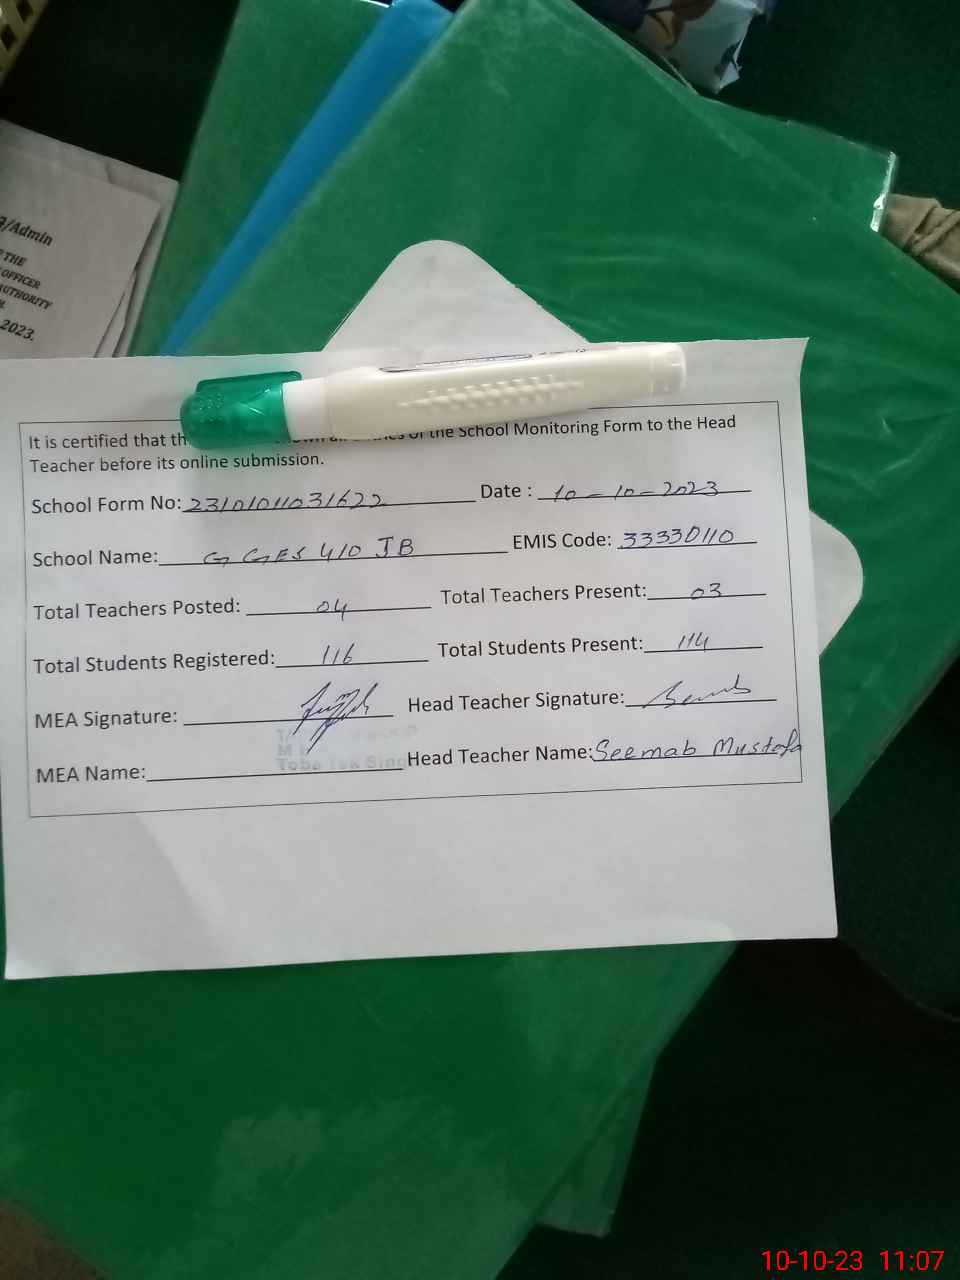 /Admin
THE
OFFICER
AUTHORITY
2023.
It is certified that the School Monitoring Form to the Head
Teacher before its online submission.
School Form No: 2310101031622 Date : 10-10-2023
School Name: GGES 410 JB EMIS Code: 33330110
Total Teachers Posted: 04 Total Teachers Present: 03
Total Students Registered: 116 Total Students Present: 114
MEA Signature: Head Teacher Signature: Seemab
MEA Name: Head Teacher Name: Seemab Mustafa
Toba Tek Singh
10-10-23 11:07